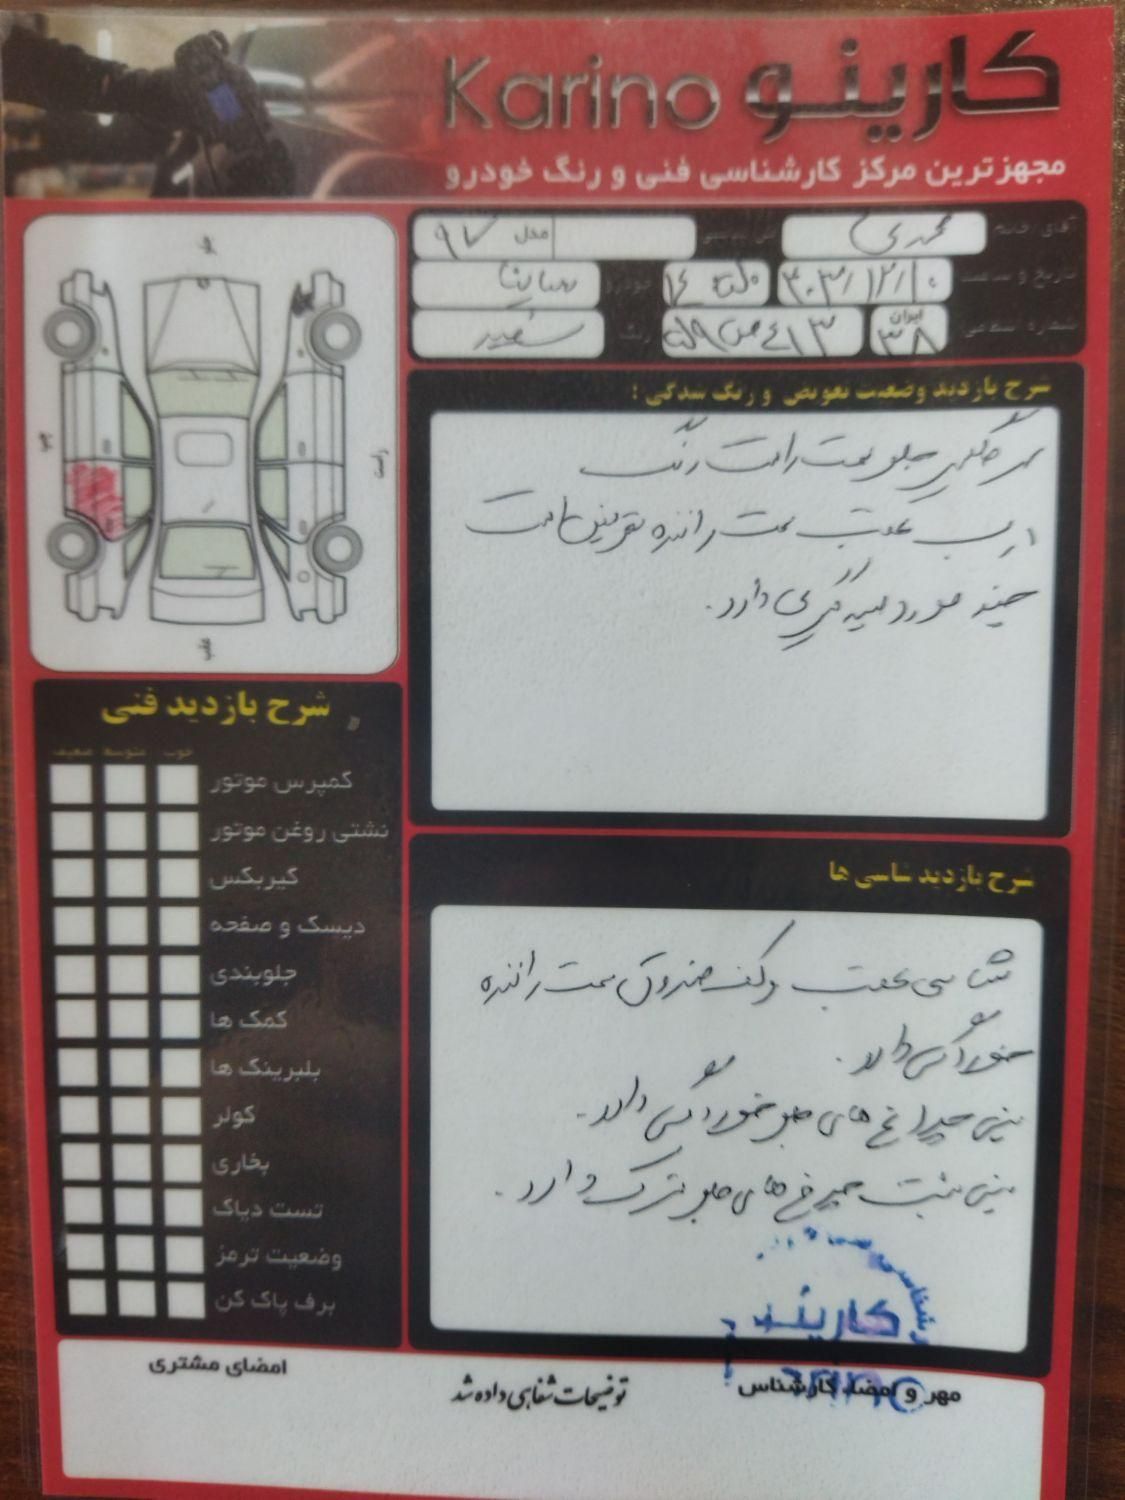 Karino کارینو
مجهزترین مرکز کارشناسی فنی و رنگ خودرو
آقای / خانم محمدی مدل ۹۷
تاریخ و ساعت خودرو ساینا
شماره انتظامی ایران ۳۸ رنگ سفید
جلو
چپ
راست
عقب
شرح بازدید وضعیت تعویض و رنگ شدگی :
سر گلگیر جلو سمت راست رنگ
درب عقب سمت راننده تعویض است
چند مورد لیسه گیری دارد.
شرح بازدید فنی
خوب متوسط ضعیف
کمپرس موتور
نشتی روغن موتور
گیربکس
دیسک و صفحه
جلوبندی
کمک ها
بلبرینگ ها
کولر
بخاری
تست دیاگ
وضعیت ترمز
برف پاک کن
شرح بازدید شاسی ها
شاسی عقب و کف صندوق سمت راننده
خوردگی دارد.
سینی چراغ های جلو خوردگی دارد.
سینی پشت چراغ های جلو ترک دارد.
کارینو
مهر و امضاء کارشناس
توضیحات شفاهی داده شد
امضای مشتری